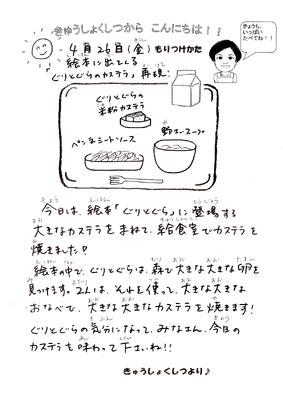 きゅうしょくしつから こんにちは！！
きょうも、
いっぱい
たべてね！！
4月26日(金) もりつけかた
絵本に出てくる
「ぐりとぐらのカステラ」再現!
ぐりとぐらの
米粉カステラ
野菜スープ
ペンネミートソース
今日は、絵本「ぐりとぐら」に登場する
大きなカステラをまねて、給食室でカステラを
焼きました！
絵本の中で、ぐりとぐらは、森で大きな大きな卵を
見つけます。2人は、それを使って、大きな大きな
おなべで、大きな大きなカステラを焼きます！
ぐりとぐらの気分になって、みなさん、今日の
カステラを味わって下さいね！！
きゅうしょくしつより♪